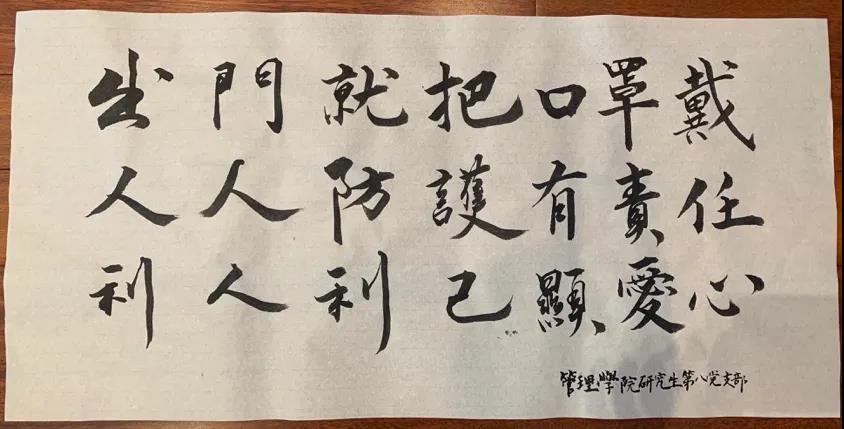 出門就把口罩戴
人人防護有責任
利人利己顯愛心
管理學院研究生第八党支部